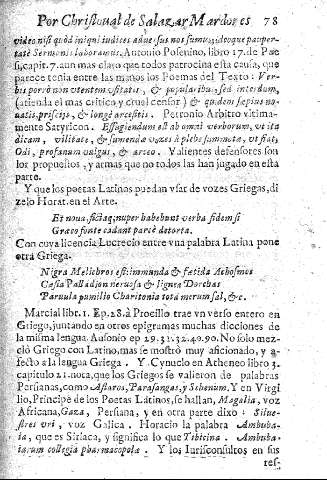 Por Christoual de Salazar Mardones 78
video nisi quòd iniqui iudices aduersus nos sumus, ideoque paupertate
Sermonis laboramus. Antonio Poseuino, libro 17. de
su, capit. 7. aun mas claro que todos patrocina esta causa, que
parece tenia entre las manos los Poemas del Texto: Verbis
porrò non vtentem vsitatis, & popularibus, sed interdum,
(atienda el mas critico y crual censor) & quidem sæpius nouatis,
priscis, & longè arcesitis. Petronio Arbitro vltimamente
Satyricon. Effugiendum est ab omni verborum, vt ita
dicam, vilitate, & sumendæ voces à plebe summotæ, vt fiat,
Odi, profanum vulgus, & arceo. Valientes defensores son
los propuestos, y armas que no todos las han jugado en esta
parte.
Y que los poetas Latinos puedan vsar de vozes Griegas, di
zelo Horat. en el Arte.
Et noua, fictaq; nuper habebunt verba fidem si
Græco fonte cadant parcè detorta.
Con cuya licencia Lucrecio entre vna palabra Latina pone
otra Griega.
Nigra Melichros est: inmunda & fœtida Acosmos
Cæsia Palladion neruosa & lignea Dorcas
Paruula pumilio Charitonia tota merum sal, &c.
Marcial libr. 1. Ep. 28. à Procillo trae vn verso entero en
Griego, juntando en otros epigramas muchas dicciones de
la misma lengua. Ausonio ep 29. 31. 32. 40. 90. No solo mezclò
Griego con Latino, mas se mostrò muy aficionado, y afecto
a la lengua Griega. Y Cynulco en Atheneo libro 3.
capitulo 21. nota, que los Griegos se valieron de palabras
Persianas, como Astaros, Parasangas, y Schenum. Y en Virgilio,
Principe de los Poetas Latinos, se hallan, Magalia, voz
Africana, Gaza, Persiana, y en otra parte dixo: Siluestres
vri, voz Galica. Horacio la palabra Ambubaia,
que es Siriaca, y significa lo que Tibicina. Ambubaiarum
collegia pharmacopolæ. Y los Iurisconsultos en sus
res-